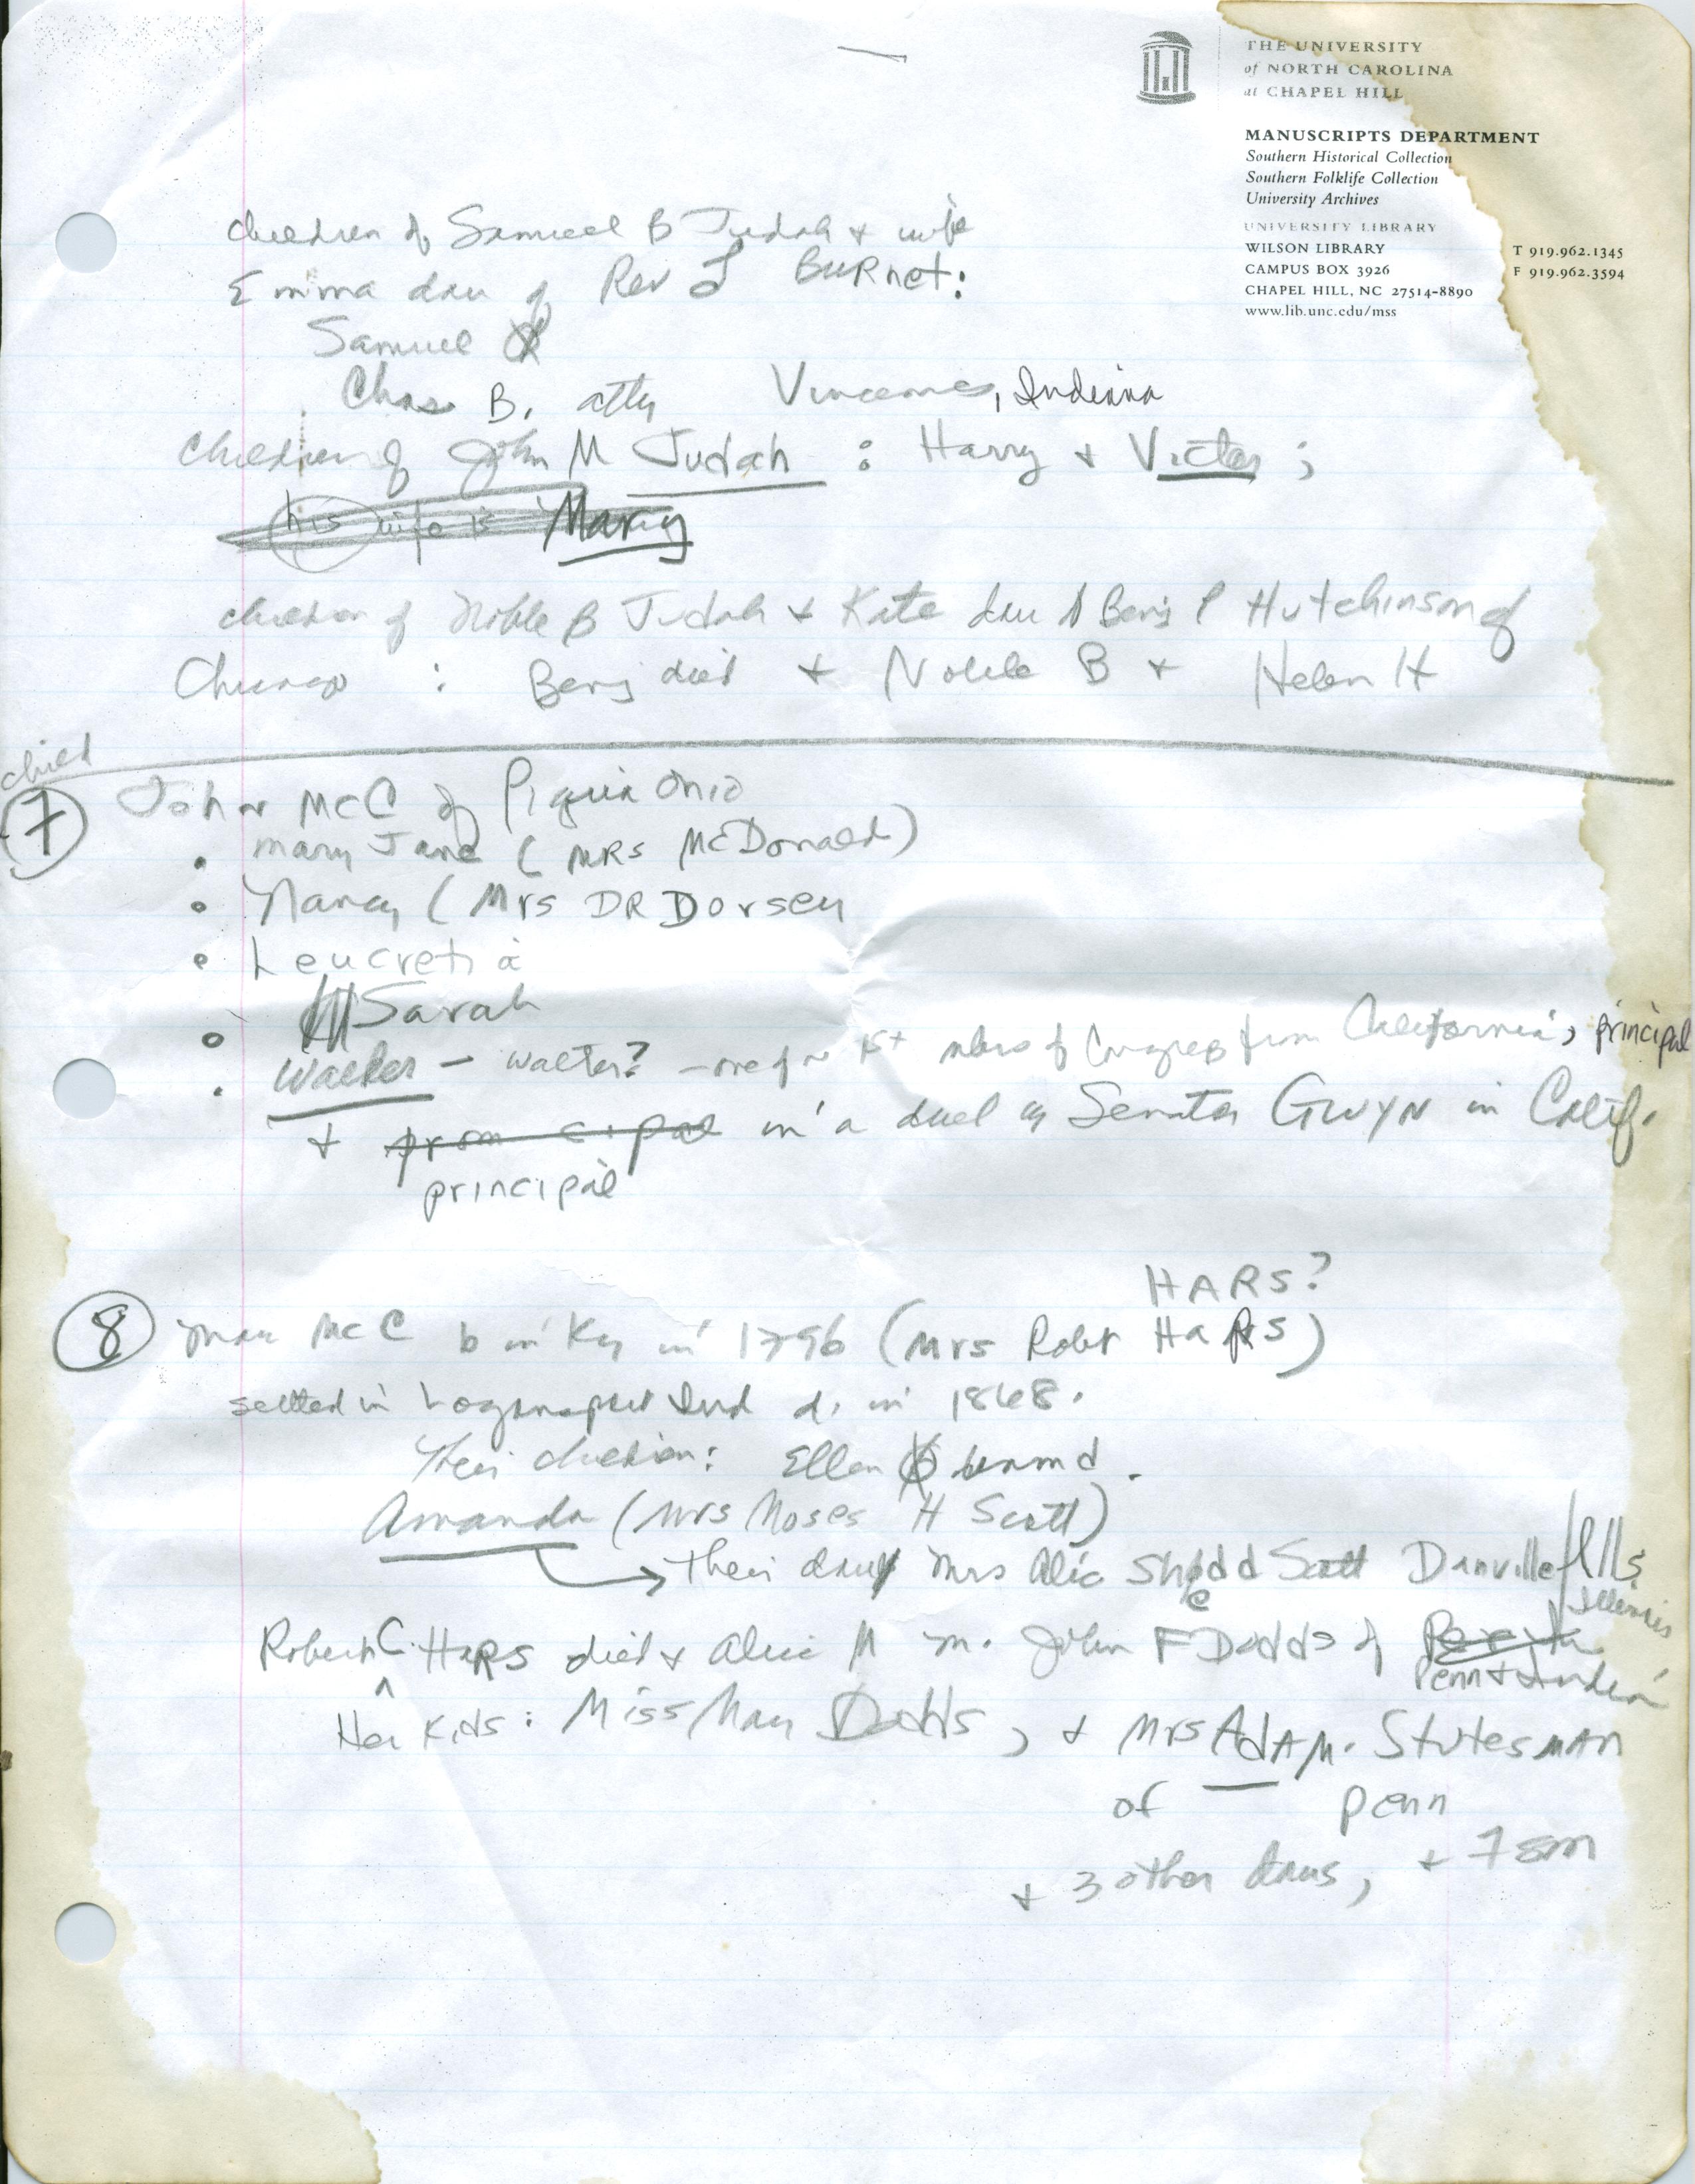 THE UNIVERSITY
of NORTH CAROLINA
at CHAPEL HILL
MANUSCRIPTS DEPARTMENT
Southern Historical Collection
Southern Folklife Collection
University Archives
UNIVERSITY LIBRARY
WILSON LIBRARY T 919.962.1345
CAMPUS BOX 3926 F 919.962.3594
CHAPEL HILL, NC 27514-8890
www.lib.unc.edu/mss
children of Samuel B Judah & wife
Emma dau of Rev J BURnet:
Samuel
Chas B. atty Vincennes, Indiana
Children of John M Judah : Harry & Victor ;
his wife is Mary
children of Noble B Judah & Kate dau of Benj P Hutchinson of
Chicago : Benj died + Noble B + Helen H
child
7 John McC of Piqua Ohio
• Mary Jane (MRS McDonald)
• Nancy (Mrs DR Dorsey
• Leucretia
• Sarah
• Walker - Walter? - one of 1st mbrs of Congress from California, principal
+ in a duel Senator GWYN in Calif.
principal
HARS?
8 McC b in Ky in 1796 (Mrs Robt HaRs)
settled in Logansport Ind d. in 1868.
Their children: Ellen unmd.
Amanda (Mrs Moses H Scott)
→ Their dau Mrs Alic Shedd Scott Danville Ills
Illinois
Robert C. HaRS died + Alice M m. John F Dodds of
Penn & Indiana
Her kids: Miss May Dodds, + Mrs AdA M. StutesMAN
of Penn
+ 3 other daus, + 7 son